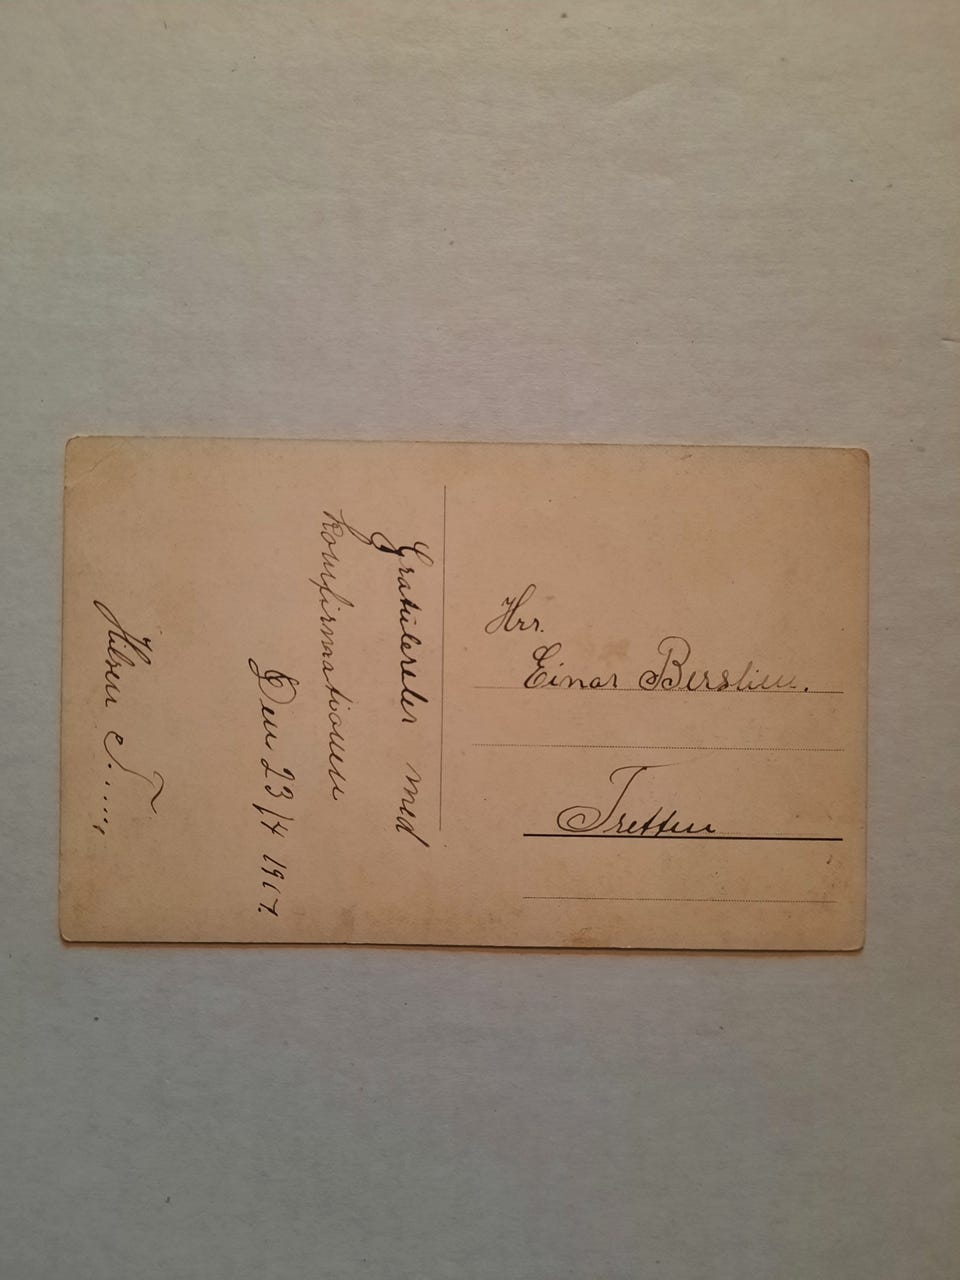 Gratulerer med
Konfirmationen
Den 23/4 1917.
Hilsen
Hrr.
Einar Berslien.
Tretten